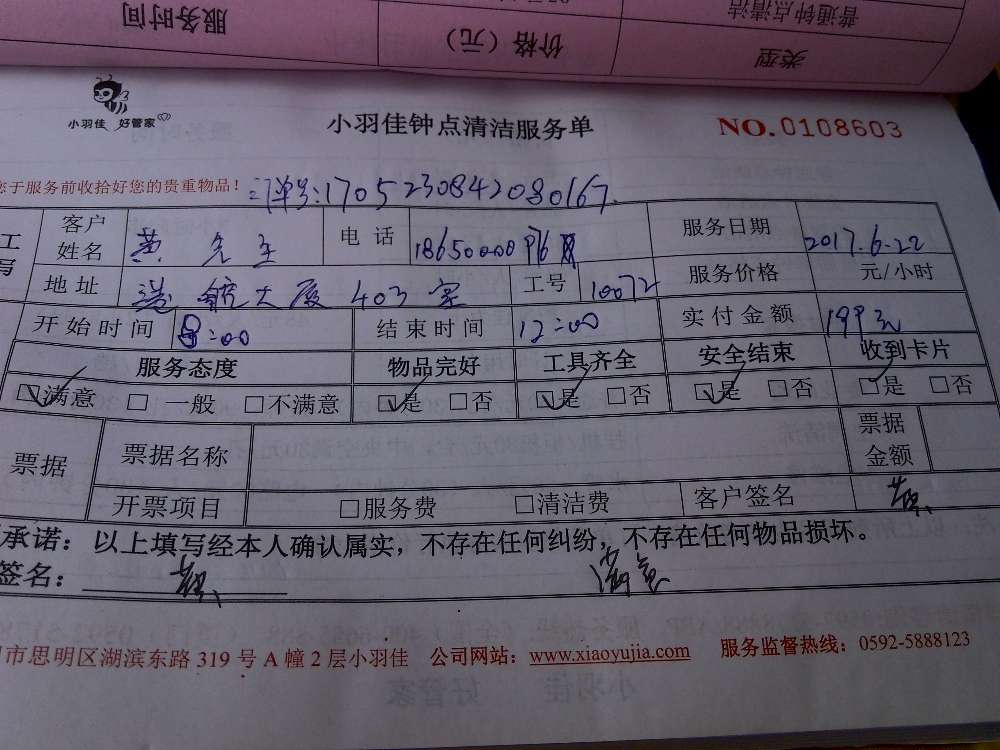 服务时间
价格（元）
普通钟点清洁
类型
小羽佳 好管家
小羽佳钟点清洁服务单
NO.0108603
您于服务前收拾好您的贵重物品！
订单号:1705230842080167
客户姓名 黄先生 电话 服务日期 2017.6.22
地址 大厦403室 工号 10072 服务价格 元/小时
开始时间 8:00 结束时间 12:00 实付金额 199元
服务态度 物品完好 工具齐全 安全结束 收到卡片
☑满意 □一般 □不满意 ☑是 □否 ☑是 □否 ☑是 □否 ☑是 □否
票据 票据名称 票据金额
开票项目 □服务费 □清洁费 客户签名
承诺：以上填写经本人确认属实，不存在任何纠纷，不存在任何物品损坏。
签名：
市思明区湖滨东路 319 号 A 幢 2 层小羽佳 公司网站：www.xiaoyujia.com 服务监督热线：0592-5888123